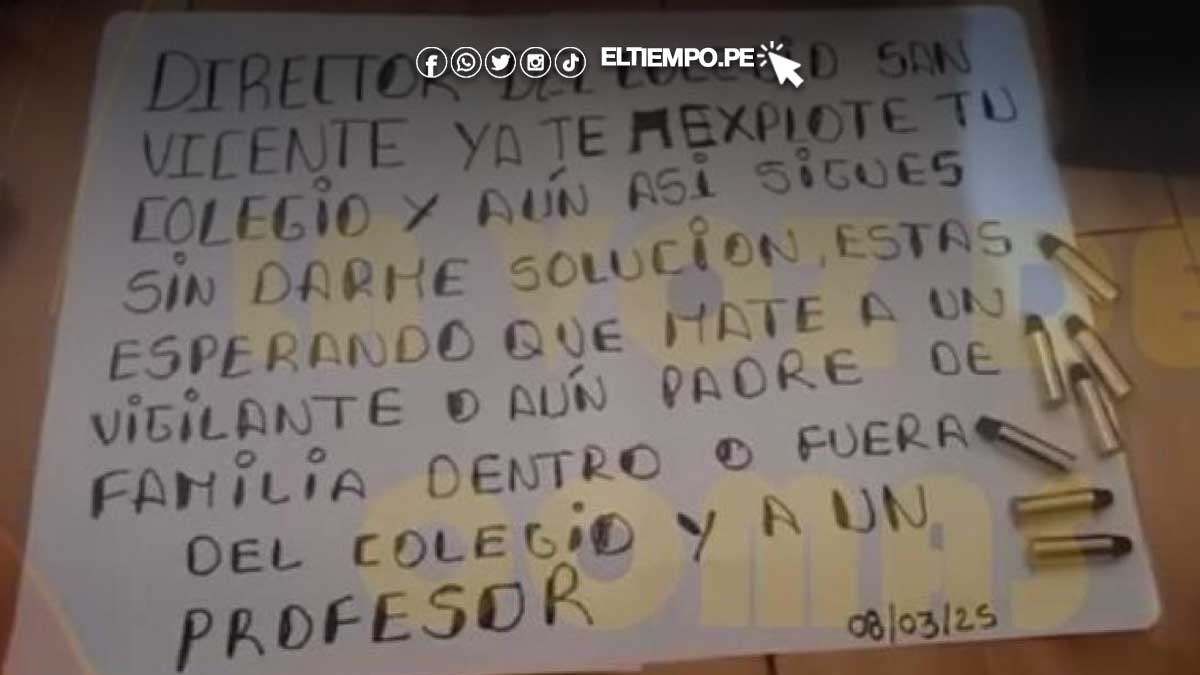 ELTIEMPO.PE
DIRECTOR DEL COLEGIO SAN
VICENTE YA TE EXPLOTE TU
COLEGIO Y AÚN ASI SIGUES
SIN DARME SOLUCION, ESTAS
ESPERANDO QUE MATE A UN
VIGILANTE O AÚN PADRE DE
FAMILIA DENTRO O FUERA
DEL COLEGIO Y A UN
PROFESOR
08/03/25
LA VOZ DE
SOMAS